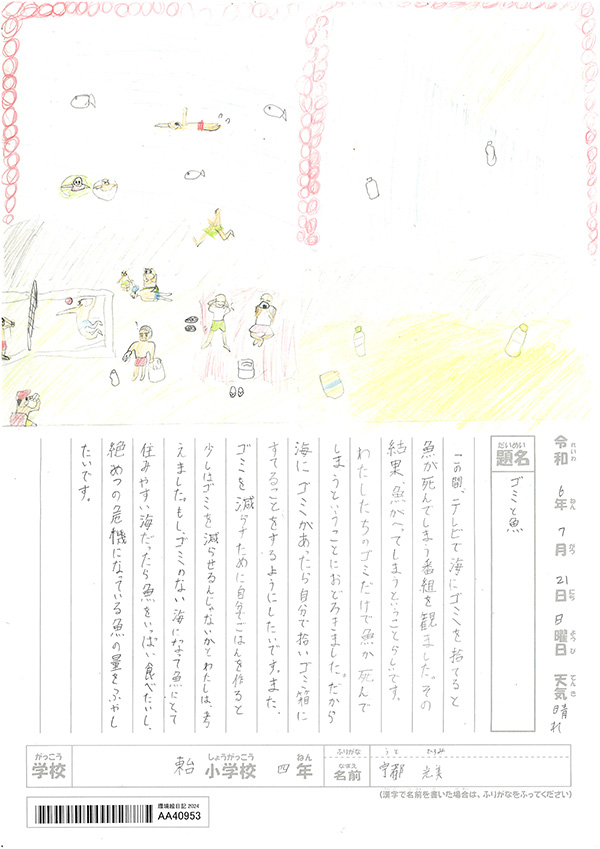 令和 6年 7月 21日 日曜日 天気 晴れ
れいわ ねん がつ にち ようび てんき
だいめい
題名
ゴミと魚
この間、テレビで海にゴミを捨てると
魚が死んでしまう番組を観ました。その
結果、魚がへってしまうということらしいです。
わたしたちのゴミだけで魚が死んで
しまうということにおどろきました。だから
海にゴミがあったら自分で拾いゴミ箱に
すてることをするようにしたいです。また、
ゴミを減らすために自分でごはんを作ると
少しはゴミを減らせるんじゃないかとわたしは、考
えました。もし、ゴミのない海になって魚にとて
住みやすい海だったら魚をいっぱい食べたいし、
絶めつの危機になっている魚の量をふやし
たいです。
がっこう しょうがっこう ねん
学校 小学校 四年
ふりがな
なまえ
名前 宇都
(漢字で名前を書いた場合は、ふりがなをふってください)
環境絵日記 2024
AA40953